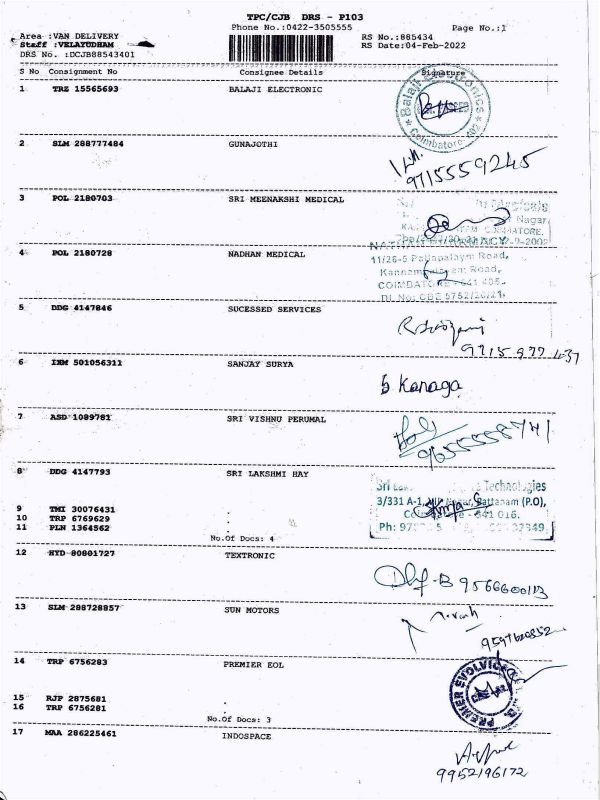 TPC/CJB DRS - P103
Phone No.:0422-3505555
Page No.:1
Area :VAN DELIVERY
Staff :VELAYUDHAM
DRS No. :DCJB88543401
RS No.:885434
RS Date:04-Feb-2022
S No Consignment No Consignee Details Signature
1 TRZ 15565693 BALAJI ELECTRONIC
Balaji Electronics
Coimbatore
2 SLM 288777484 GUNAJOTHI
9715559245
3 POL 2180703 SRI MEENAKSHI MEDICAL
Nagar,
4 POL 2180728 NADHAN MEDICAL
PHARMACY
11/26-5 Pallapalaym Road,
Road,
COIMBATORE - 641 405.
5 DDG 4147846 SUCESSED SERVICES
9715 977 437
6 IXM 501056311 SANJAY SURYA
S Kanaga
7 ASD 1089781 SRI VISHNU PERUMAL
9655558741
8 DDG 4147793 SRI LAKSHMI HAY
Sri Technologies
3/331 A-1, Nagar, Pattanam (P.O),
641 016.
Ph:
9 TMI 30076431 .
10 TRP 6769629 .
11 PLN 1364562 .
No.Of Docs: 4
12 HYD 80801727 TEXTRONIC
9566600113
13 SLM 288728857 SUN MOTORS
14 TRP 6756283 PREMIER EOL
PREMIER EVOLVICS
15 RJP 2875681 .
16 TRP 6756281 .
No.Of Docs: 3
17 MAA 286225461 INDOSPACE
9952196172